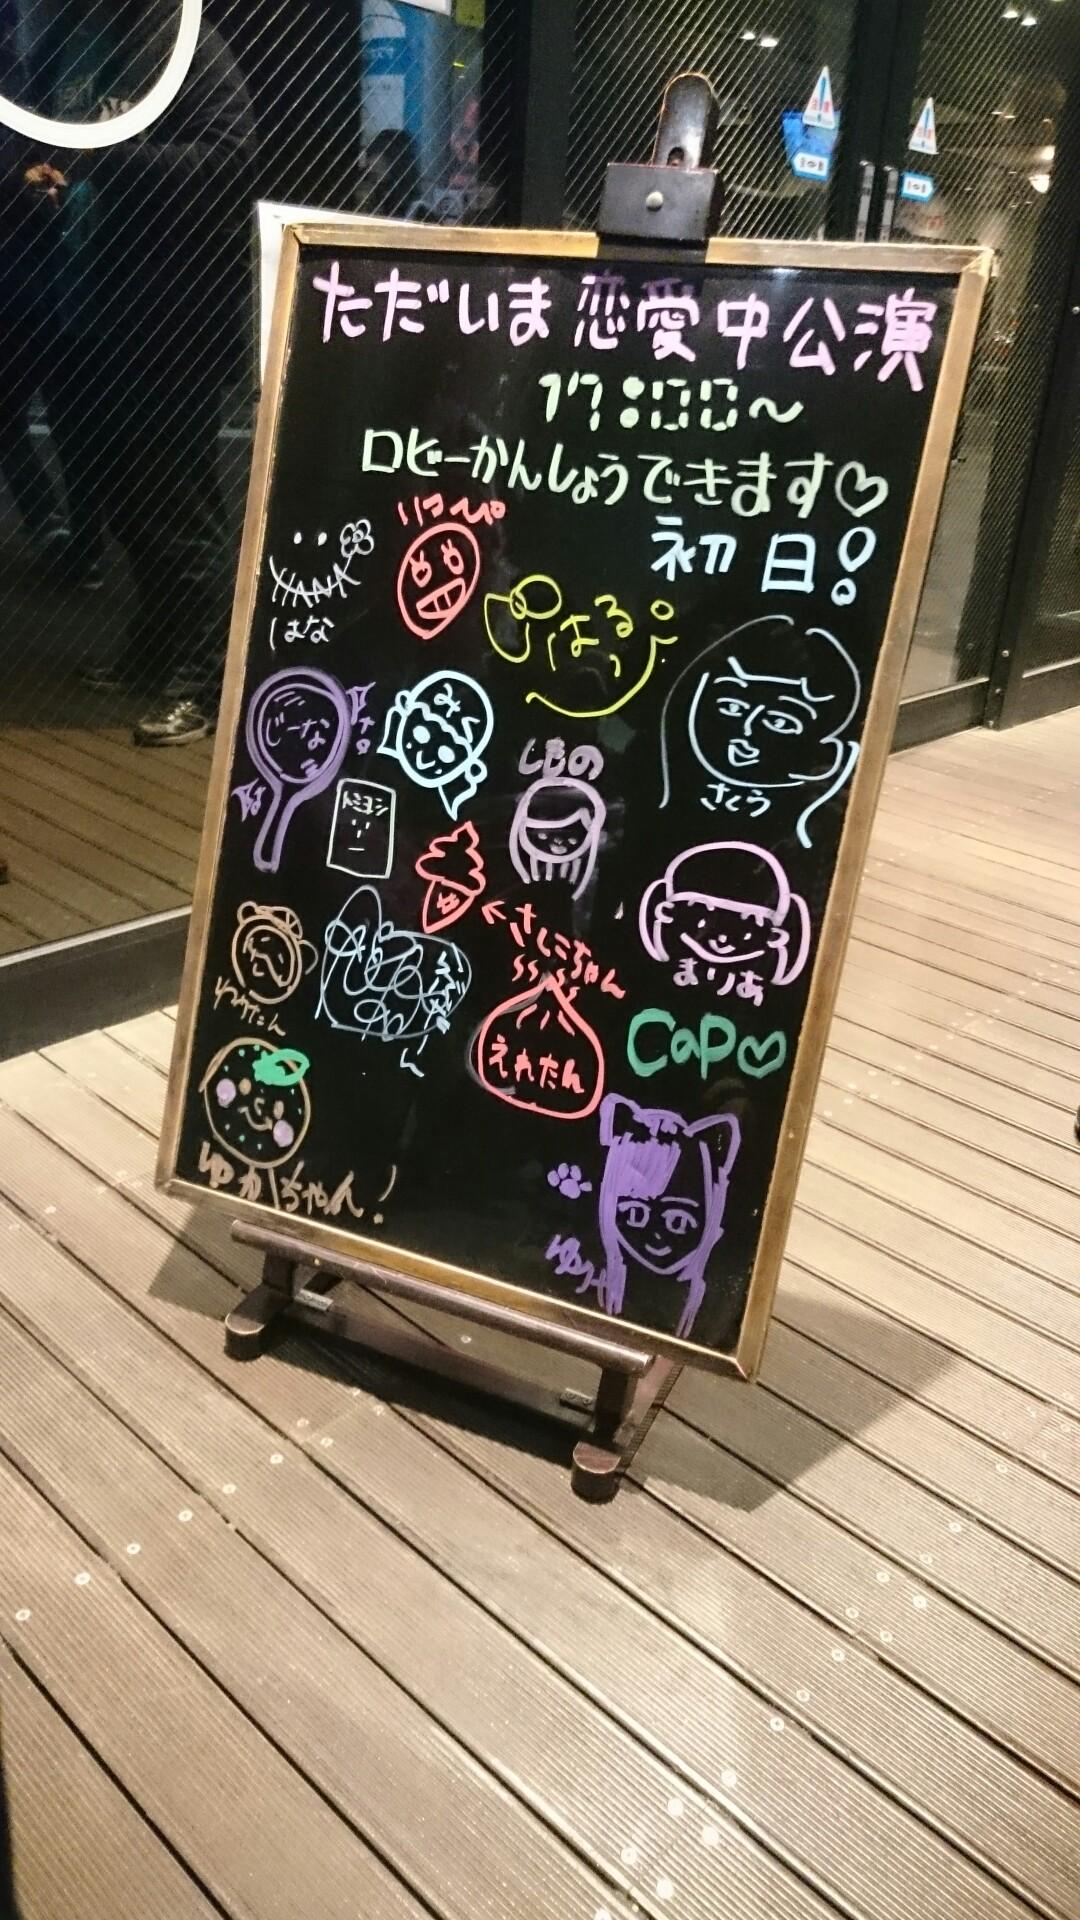 ただいま恋愛中公演
17:00～
ロビーかんしょうできます♡
初日!
りこぴ
はな
はるっ
じーな
みく
しおの
さくら
トミヨシ
さしこちゃん
まりあ
えれたん
CaP♡
ゆかちゃん!